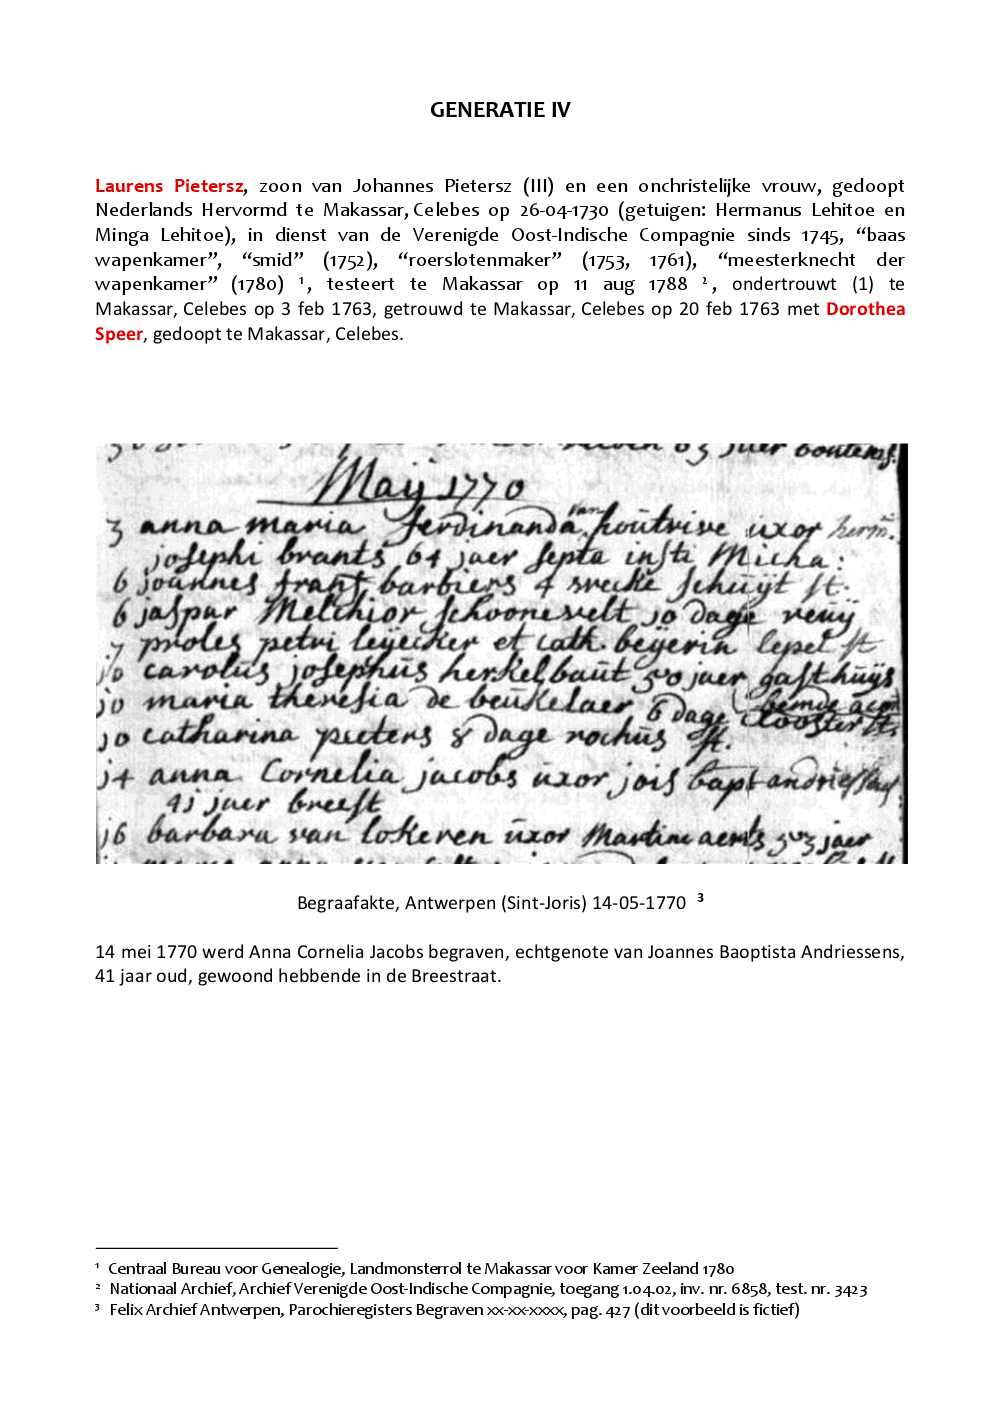 GENERATIE IV
Laurens Pietersz, zoon van Johannes Pietersz (III) en een onchristelijke vrouw, gedoopt
Nederlands Hervormd te Makassar, Celebes op 26-04-1730 (getuigen: Hermanus Lehitoe en
Minga Lehitoe), in dienst van de Verenigde Oost-Indische Compagnie sinds 1745, “baas
wapenkamer”, “smid” (1752), “roerslotenmaker” (1753, 1761), “meesterknecht der
wapenkamer” (1780) ¹, testeert te Makassar op 11 aug 1788 ², ondertrouwt (1) te
Makassar, Celebes op 3 feb 1763, getrouwd te Makassar, Celebes op 20 feb 1763 met Dorothea
Speer, gedoopt te Makassar, Celebes.
jaer
Maij 1770
3 anna maria ferdinanda van poutrive uxor herm:
josephi brants 64 jaer septa insti Micha:
6 joannes frans barbiers 4 weeke schuijt st.
6 jaspar Melchior schoonevelt 10 dage
7 proles petri leijecker et cath. beijerin lepel st
10 carolus josephus herkelbaut 50 jaer gasthuijs
10 maria theresia de beukelaer 6 dage clooster st.
10 catharina pieters 8 dage rochus st.
14 anna Cornelia jacobs uxor jois bapt andriessens
41 jaer breest
16 barbara van lokeren uxor Martini aerts 53 jaer
Begraafakte, Antwerpen (Sint-Joris) 14-05-1770 ³
14 mei 1770 werd Anna Cornelia Jacobs begraven, echtgenote van Joannes Baoptista Andriessens,
41 jaar oud, gewoond hebbende in de Breestraat.
¹ Centraal Bureau voor Genealogie, Landmonsterrol te Makassar voor Kamer Zeeland 1780
² Nationaal Archief, Archief Verenigde Oost-Indische Compagnie, toegang 1.04.02, inv. nr. 6858, test. nr. 3423
³ Felix Archief Antwerpen, Parochieregisters Begraven xx-xx-xxxx, pag. 427 (dit voorbeeld is fictief)